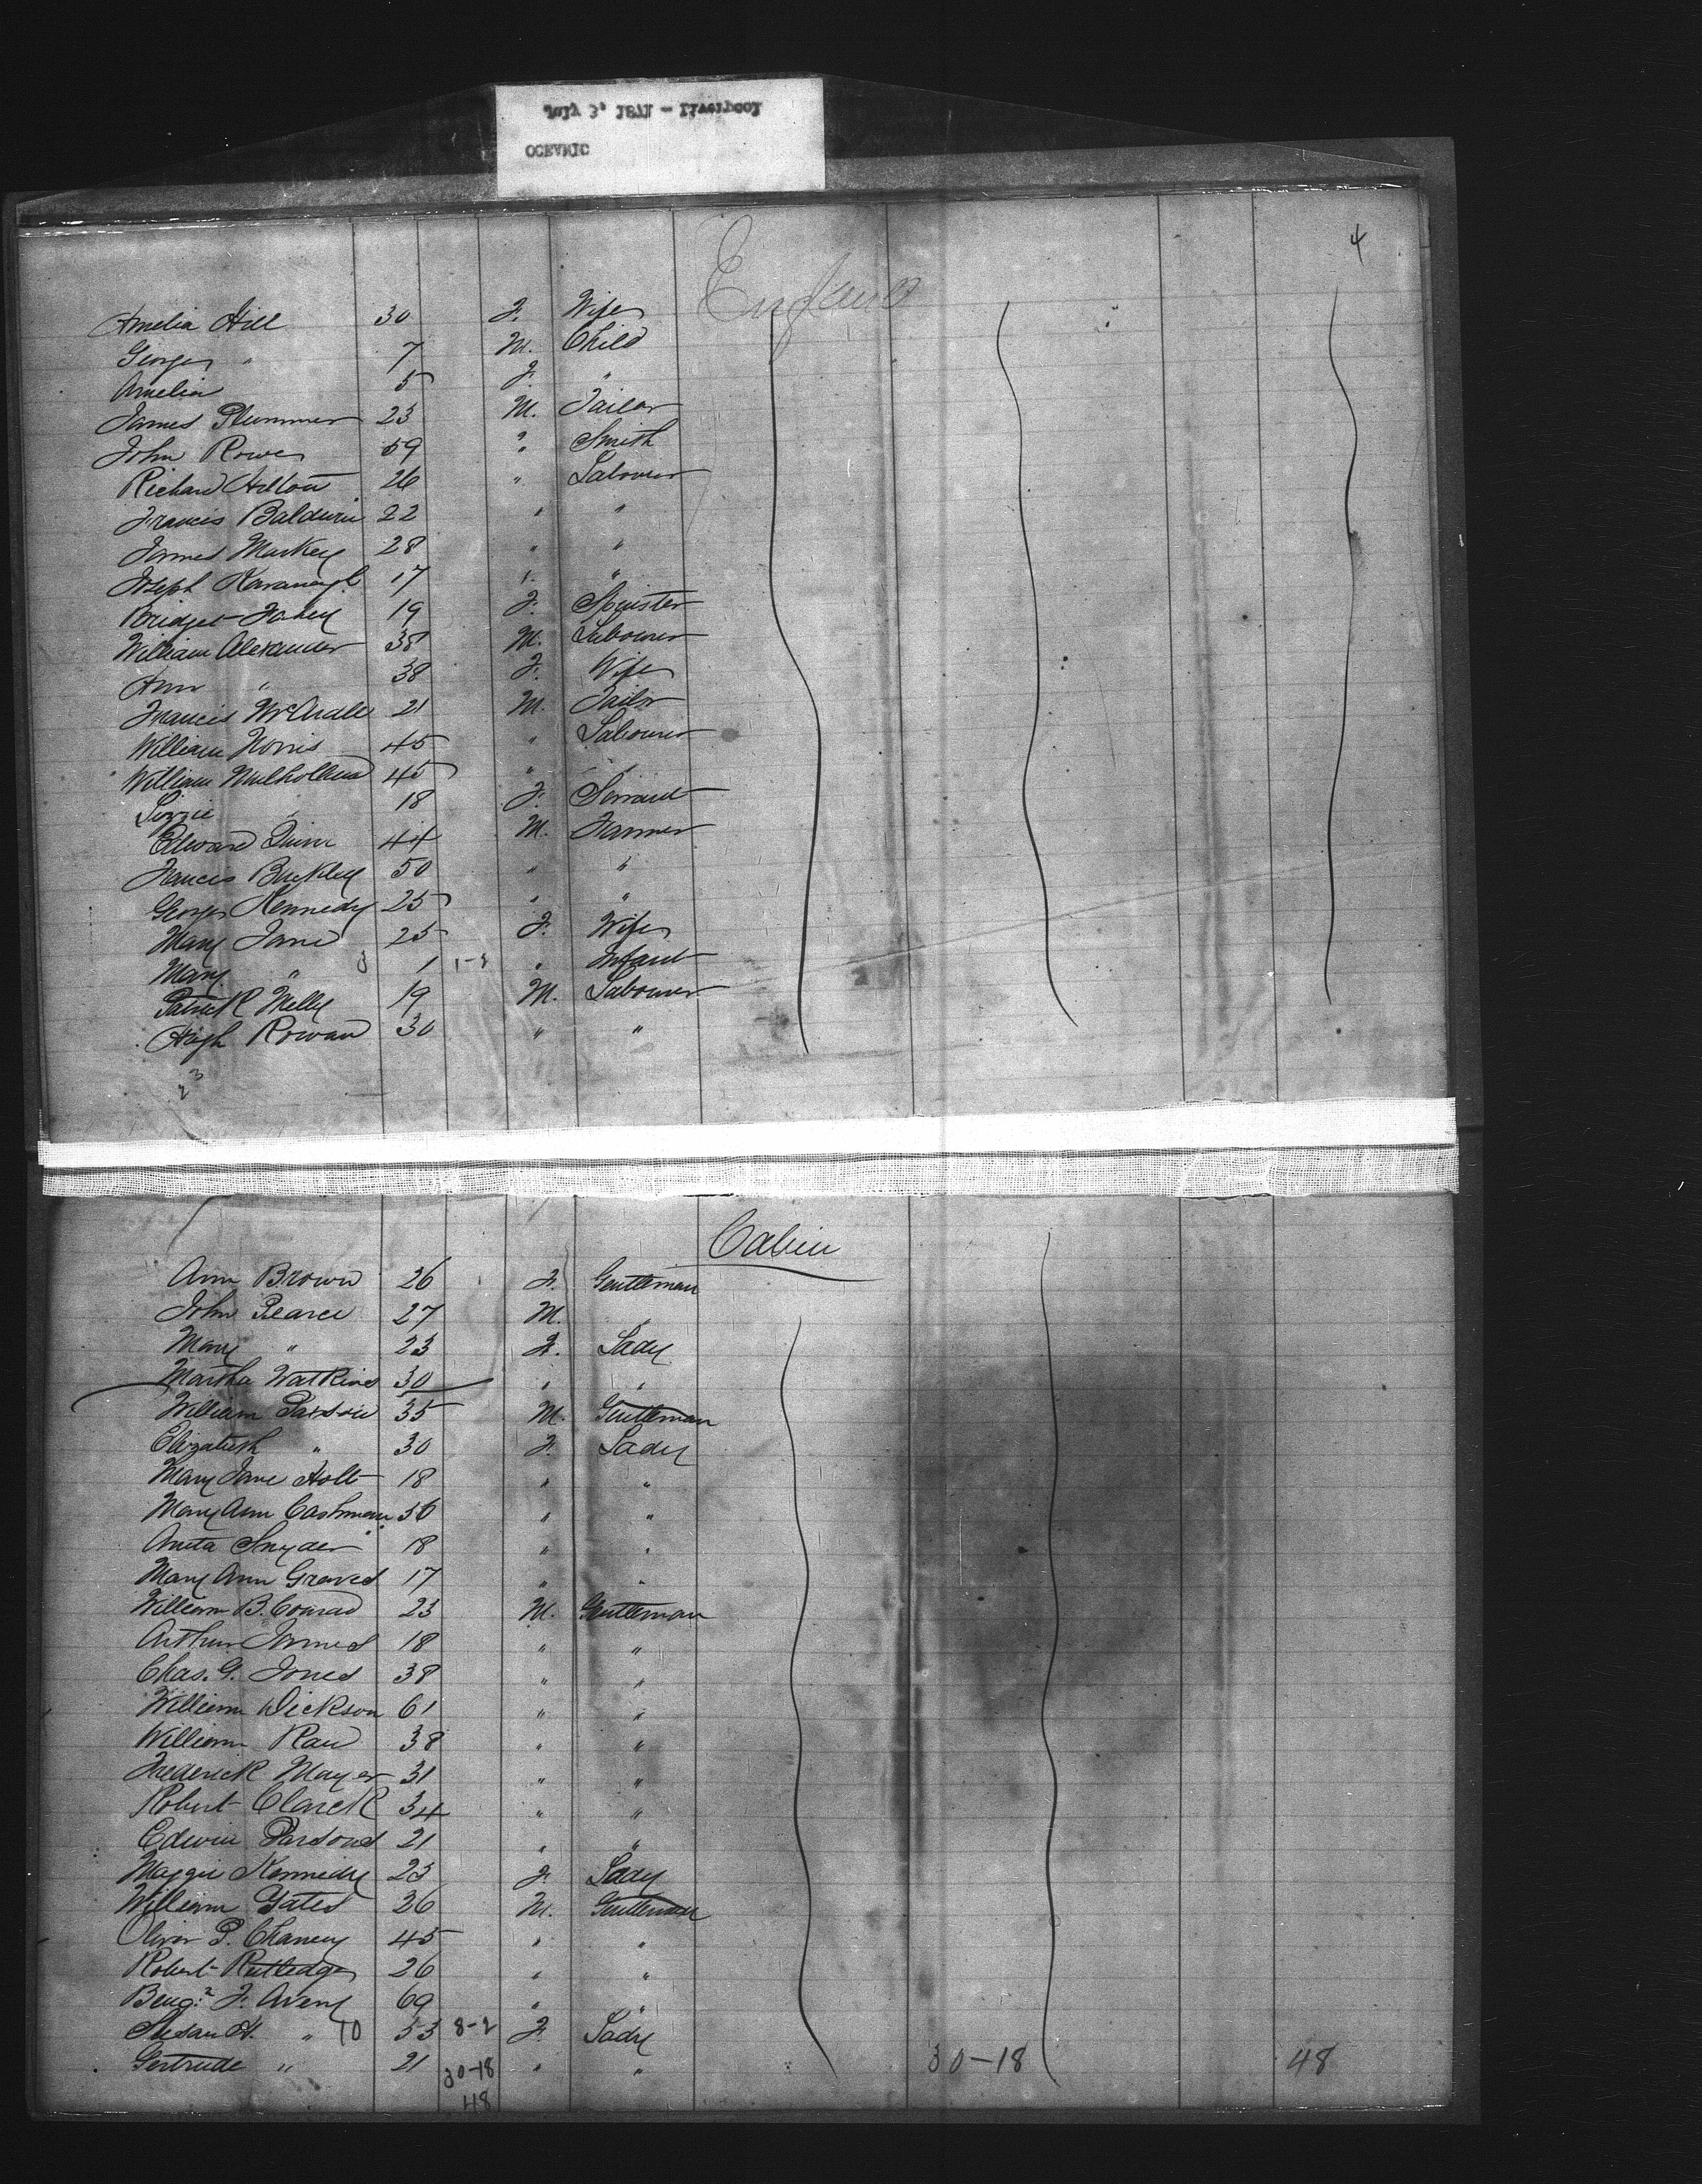 July 3, 1871 - Liverpool
OCEANIC
4
England
Amelia Hill 30 F. Wife
George " 7 M. Child
Amelia 5 F. "
James Plummer 23 M. Tailor
John Rowe 59 " Smith
Richard Hilton 26 " Labourer
Francis Baldwin 22 " "
James Markey 28 " "
Joseph Kavanagh 17 " "
Bridget Fahey 19 F. Spinster
William Alexander 38 M. Labourer
Ann " 38 F. Wife
Francis McArdle 21 M. Tailor
William Norris 45 " Labourer
William Mulholland 45 " "
Lizzie " 18 F. Servant
Edward Quinn 44 M. Farmer
Francis Buckley 50 " "
George Kennedy 25 " "
Mary Jane 25 F. Wife
Mary " 3 1 1-2 " Infant
Patrick Melly 19 M. Labourer
Hugh Rowan 30 " "
23
Cabin
Ann Brown 26 F. Gentleman
John Pearce 27 M. "
Mary " 23 F. Lady
Martha Watkins 30 " "
William 35 M. Gentleman
Elizabeth " 30 F. Lady
Mary Jane Holt 18 " "
Mary Ann Cashman 36 " "
Anita Snyder 18 " "
Mary Ann Graves 17 " "
William B. Conrad 23 M. Gentleman
Arthur James 18 " "
Chas. G. Jones 38 " "
William Dickson 61 " "
William Rau 38 " "
Frederick Mayer 31 " "
Robert Clarck 34 " "
Edwin Parsons 21 " "
Maggie Kennedy 23 F. Lady
William Yates 26 M. Gentleman
Oliver P. Chaney 45 " "
Robert Rutledge 26 " "
Benj.n F. Avery 69 " "
Susan H. " 10 53 8-2 F. Lady
Gertrude " 21 30-18 " " 30-18 48
48